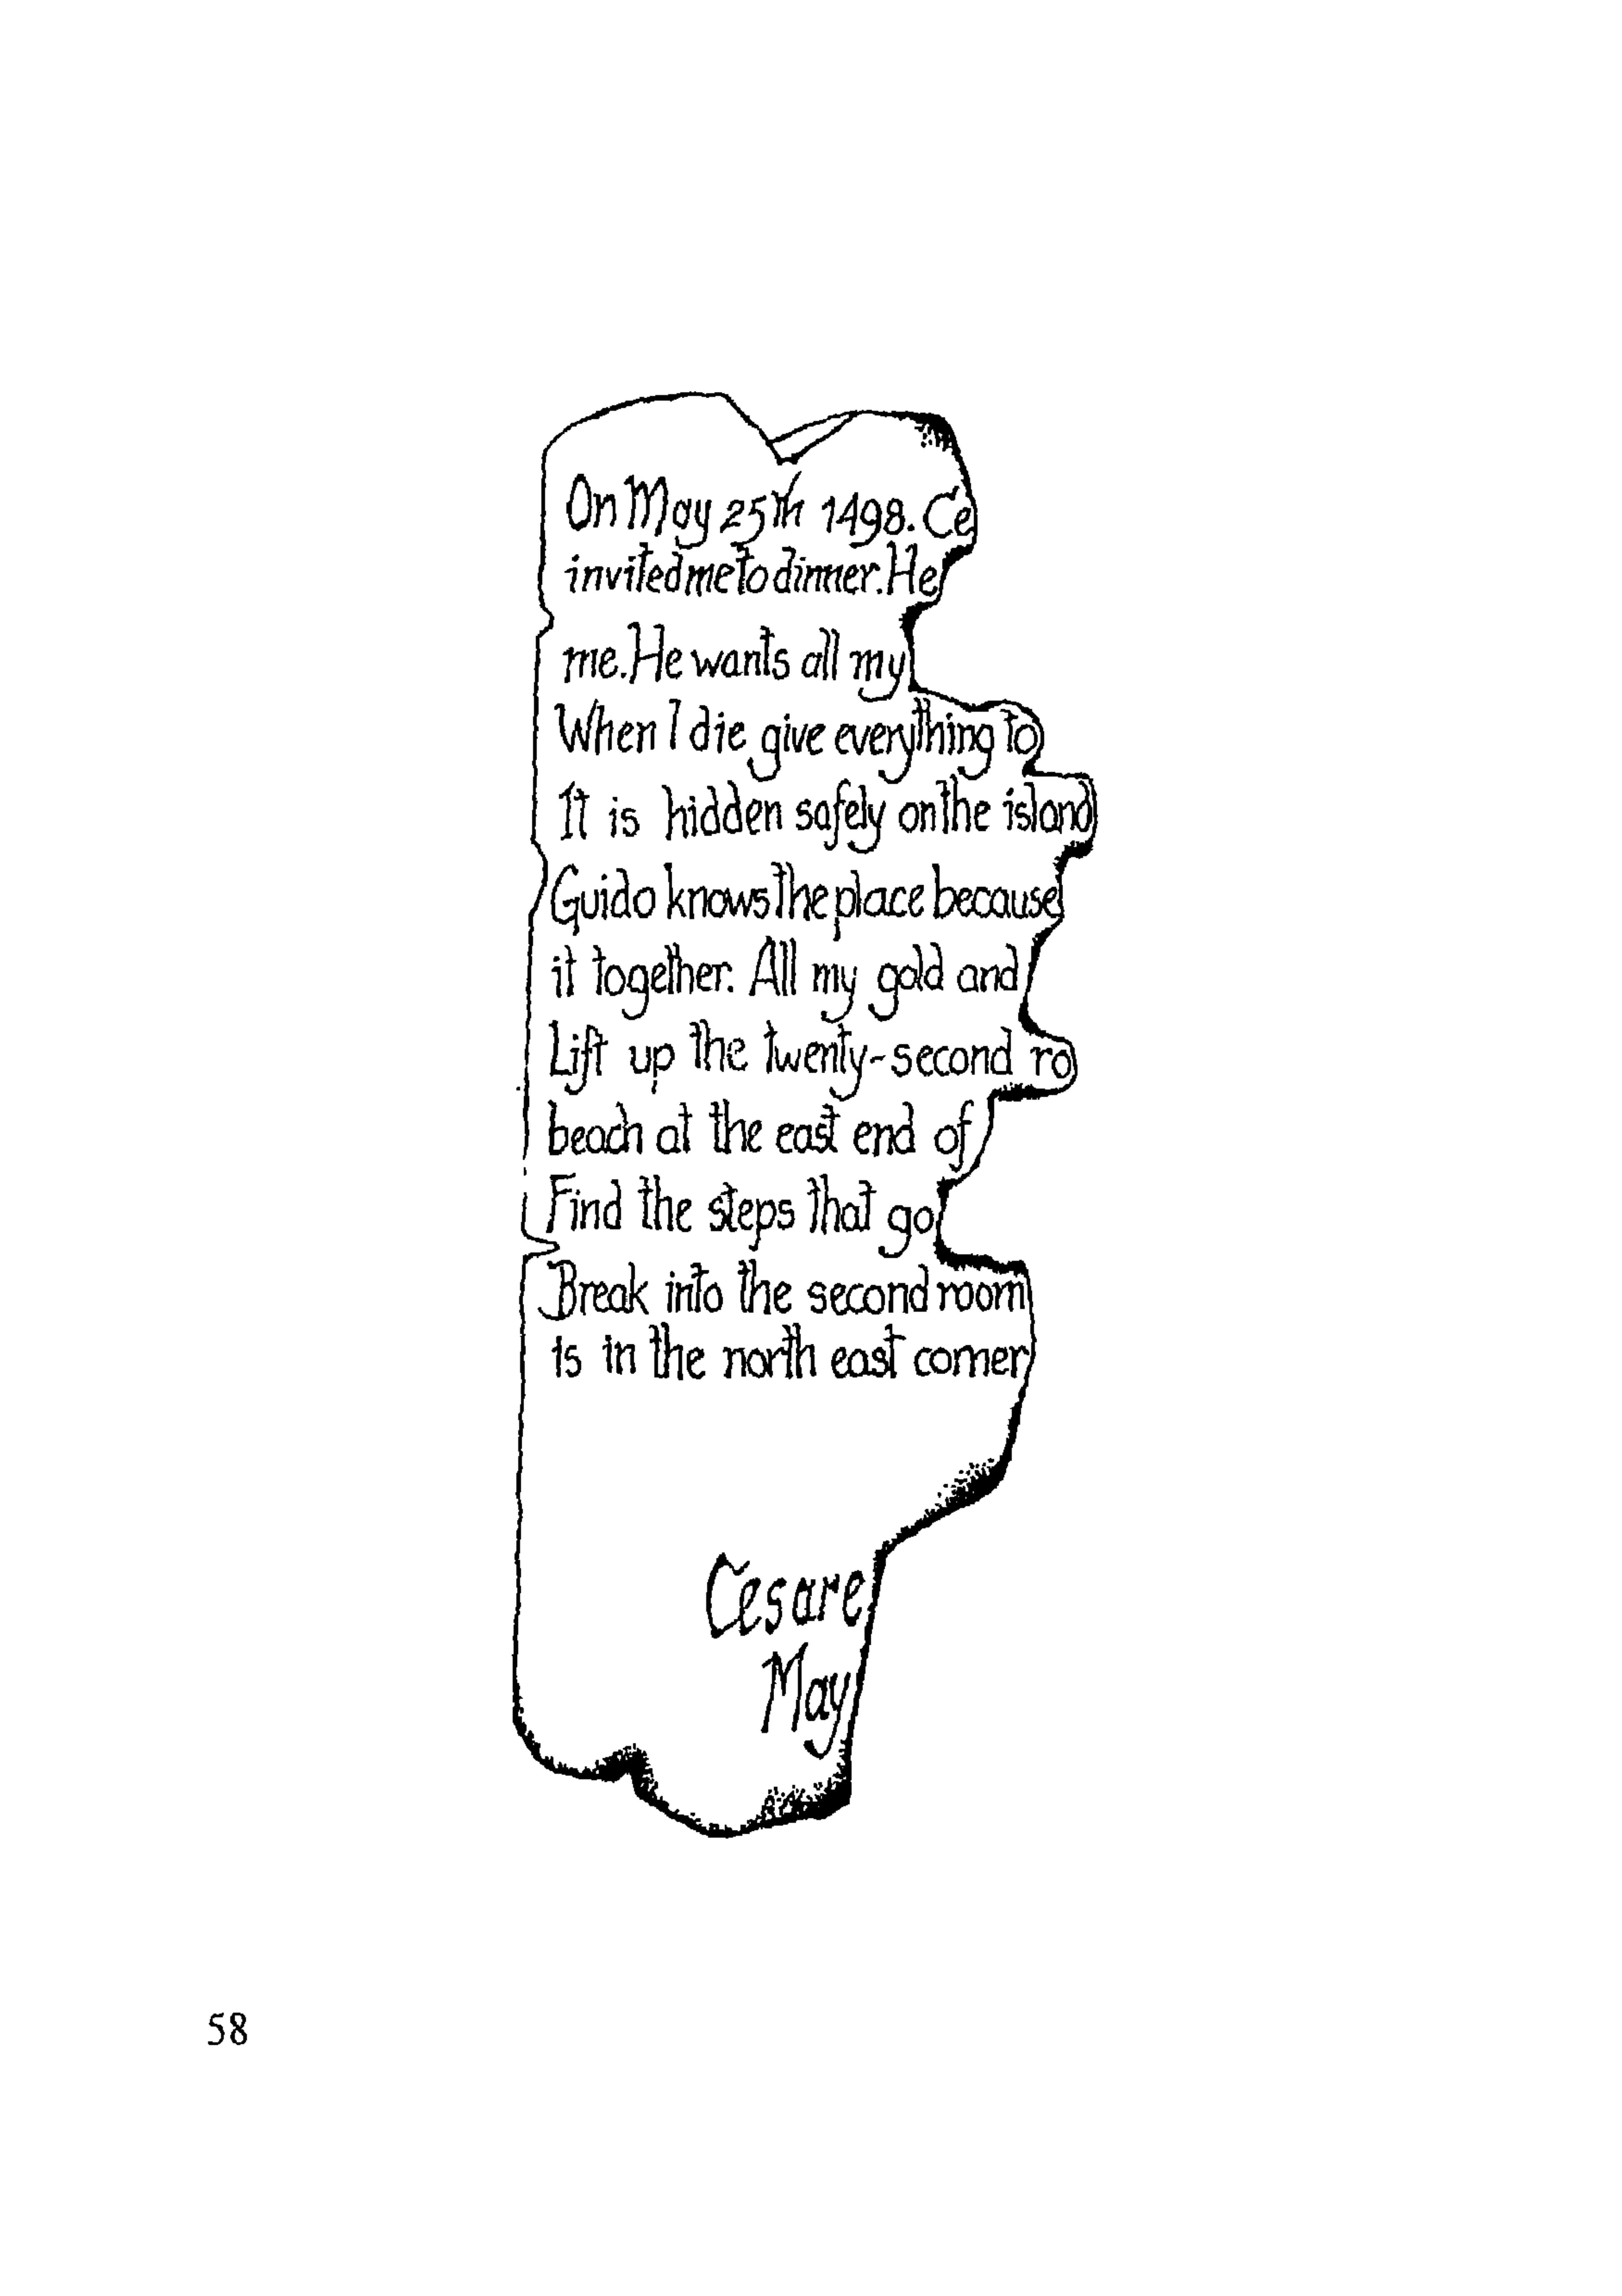 On May 25th 1498. Ce
invited me to dinner. He
me. He wants all my
When I die give everything to
It is hidden safely on the island
Guido knows the place because
it together. All my gold and
Lift up the twenty-second ro
beach at the east end of
Find the steps that go
Break into the second room
is in the north east corner
Cesare
May
58